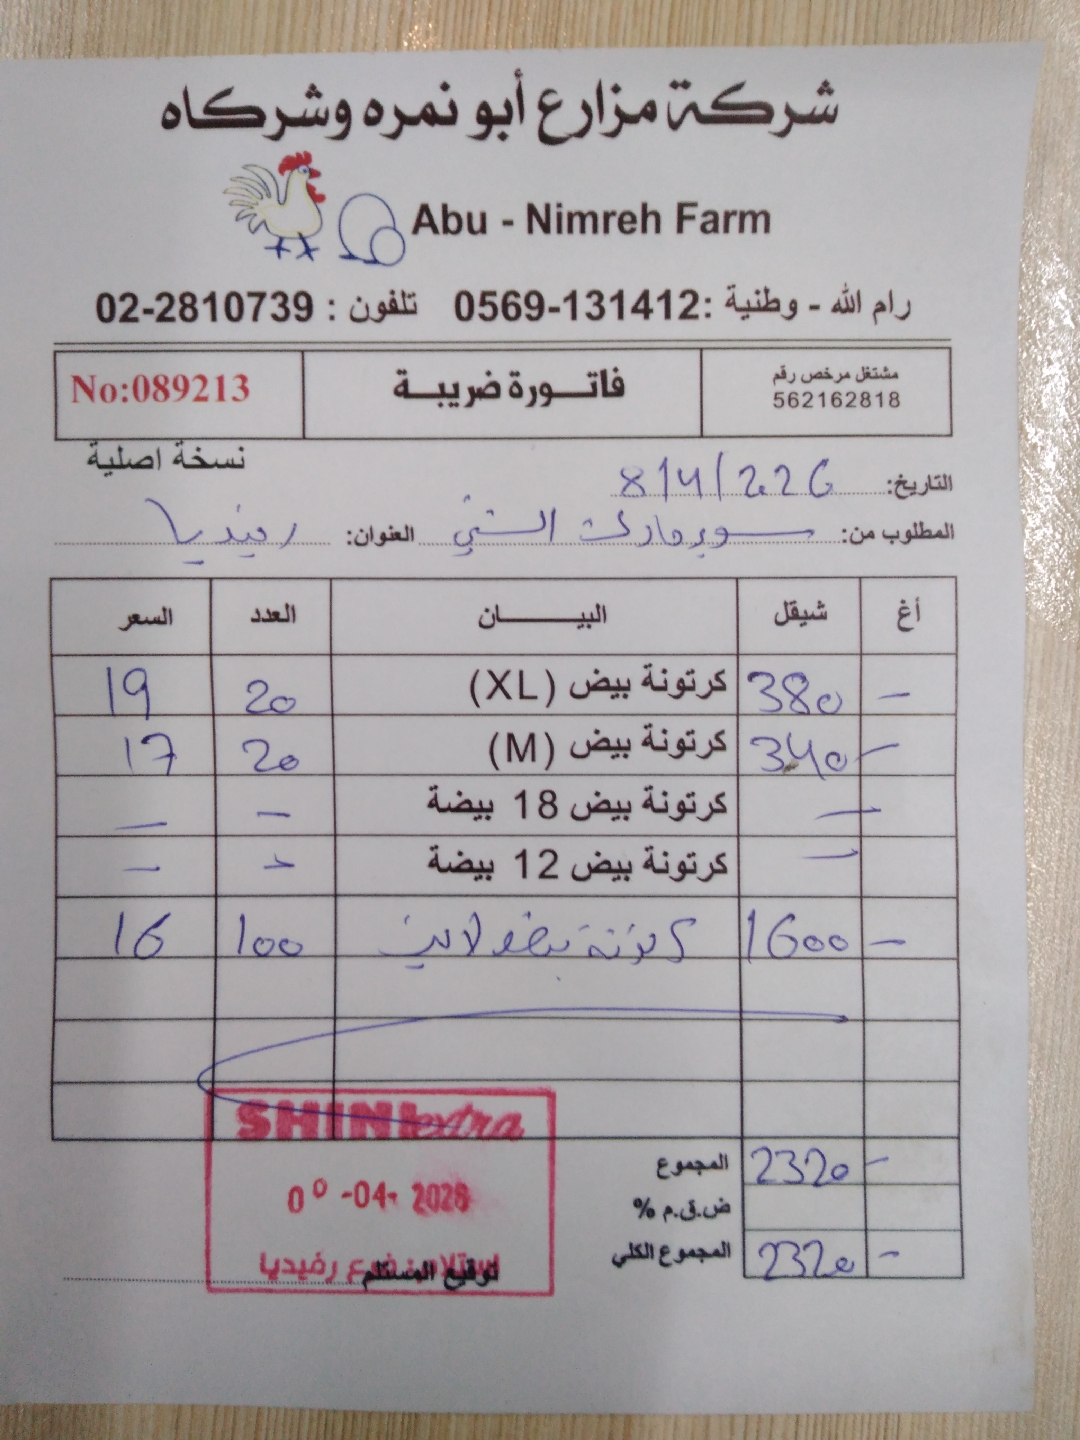 شركة مزارع أبو نمره وشركاه
Abu - Nimreh Farm
رام الله - وطنية :0569-131412 تلفون : 02-2810739
مشتغل مرخص رقم
562162818
فاتـورة ضريبـة
No:089213
نسخة اصلية
التاريخ: 8/4/226
المطلوب من: سوبرماركت الشني العنوان: رفيديا
أغ شيقل البيـــــان العدد السعر
- 380 كرتونة بيض (XL) 20 19
- 340 كرتونة بيض (M) 20 17
- كرتونة بيض 18 بيضة - -
- كرتونة بيض 12 بيضة - -
- 1600 كرتونة بيض 100 16
المجموع 2320 -
ض.ق.م %
المجموع الكلي 2320 -
SHINI extra
-04- 2026
استلام فرع رفيديا
توقيع المستلم